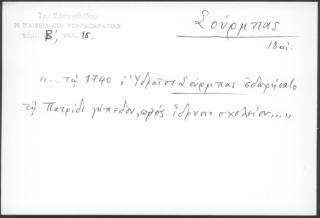 Τρ. Ευαγγελίδου
Η ΠΑΙΔΕΙΑ ΕΠΙ ΤΟΥΡΚΟΚΡΑΤΙΑΣ
τόμ. Β', σελ. 15.
Σούρμπας
18 αι.
«..τῷ 1740 ὁ Ὑδραῖος Σούρμπας ἐδωρήσατο
τῇ Πατρίδι γήπεδον, πρός ἵδρυσιν σχολείου...»